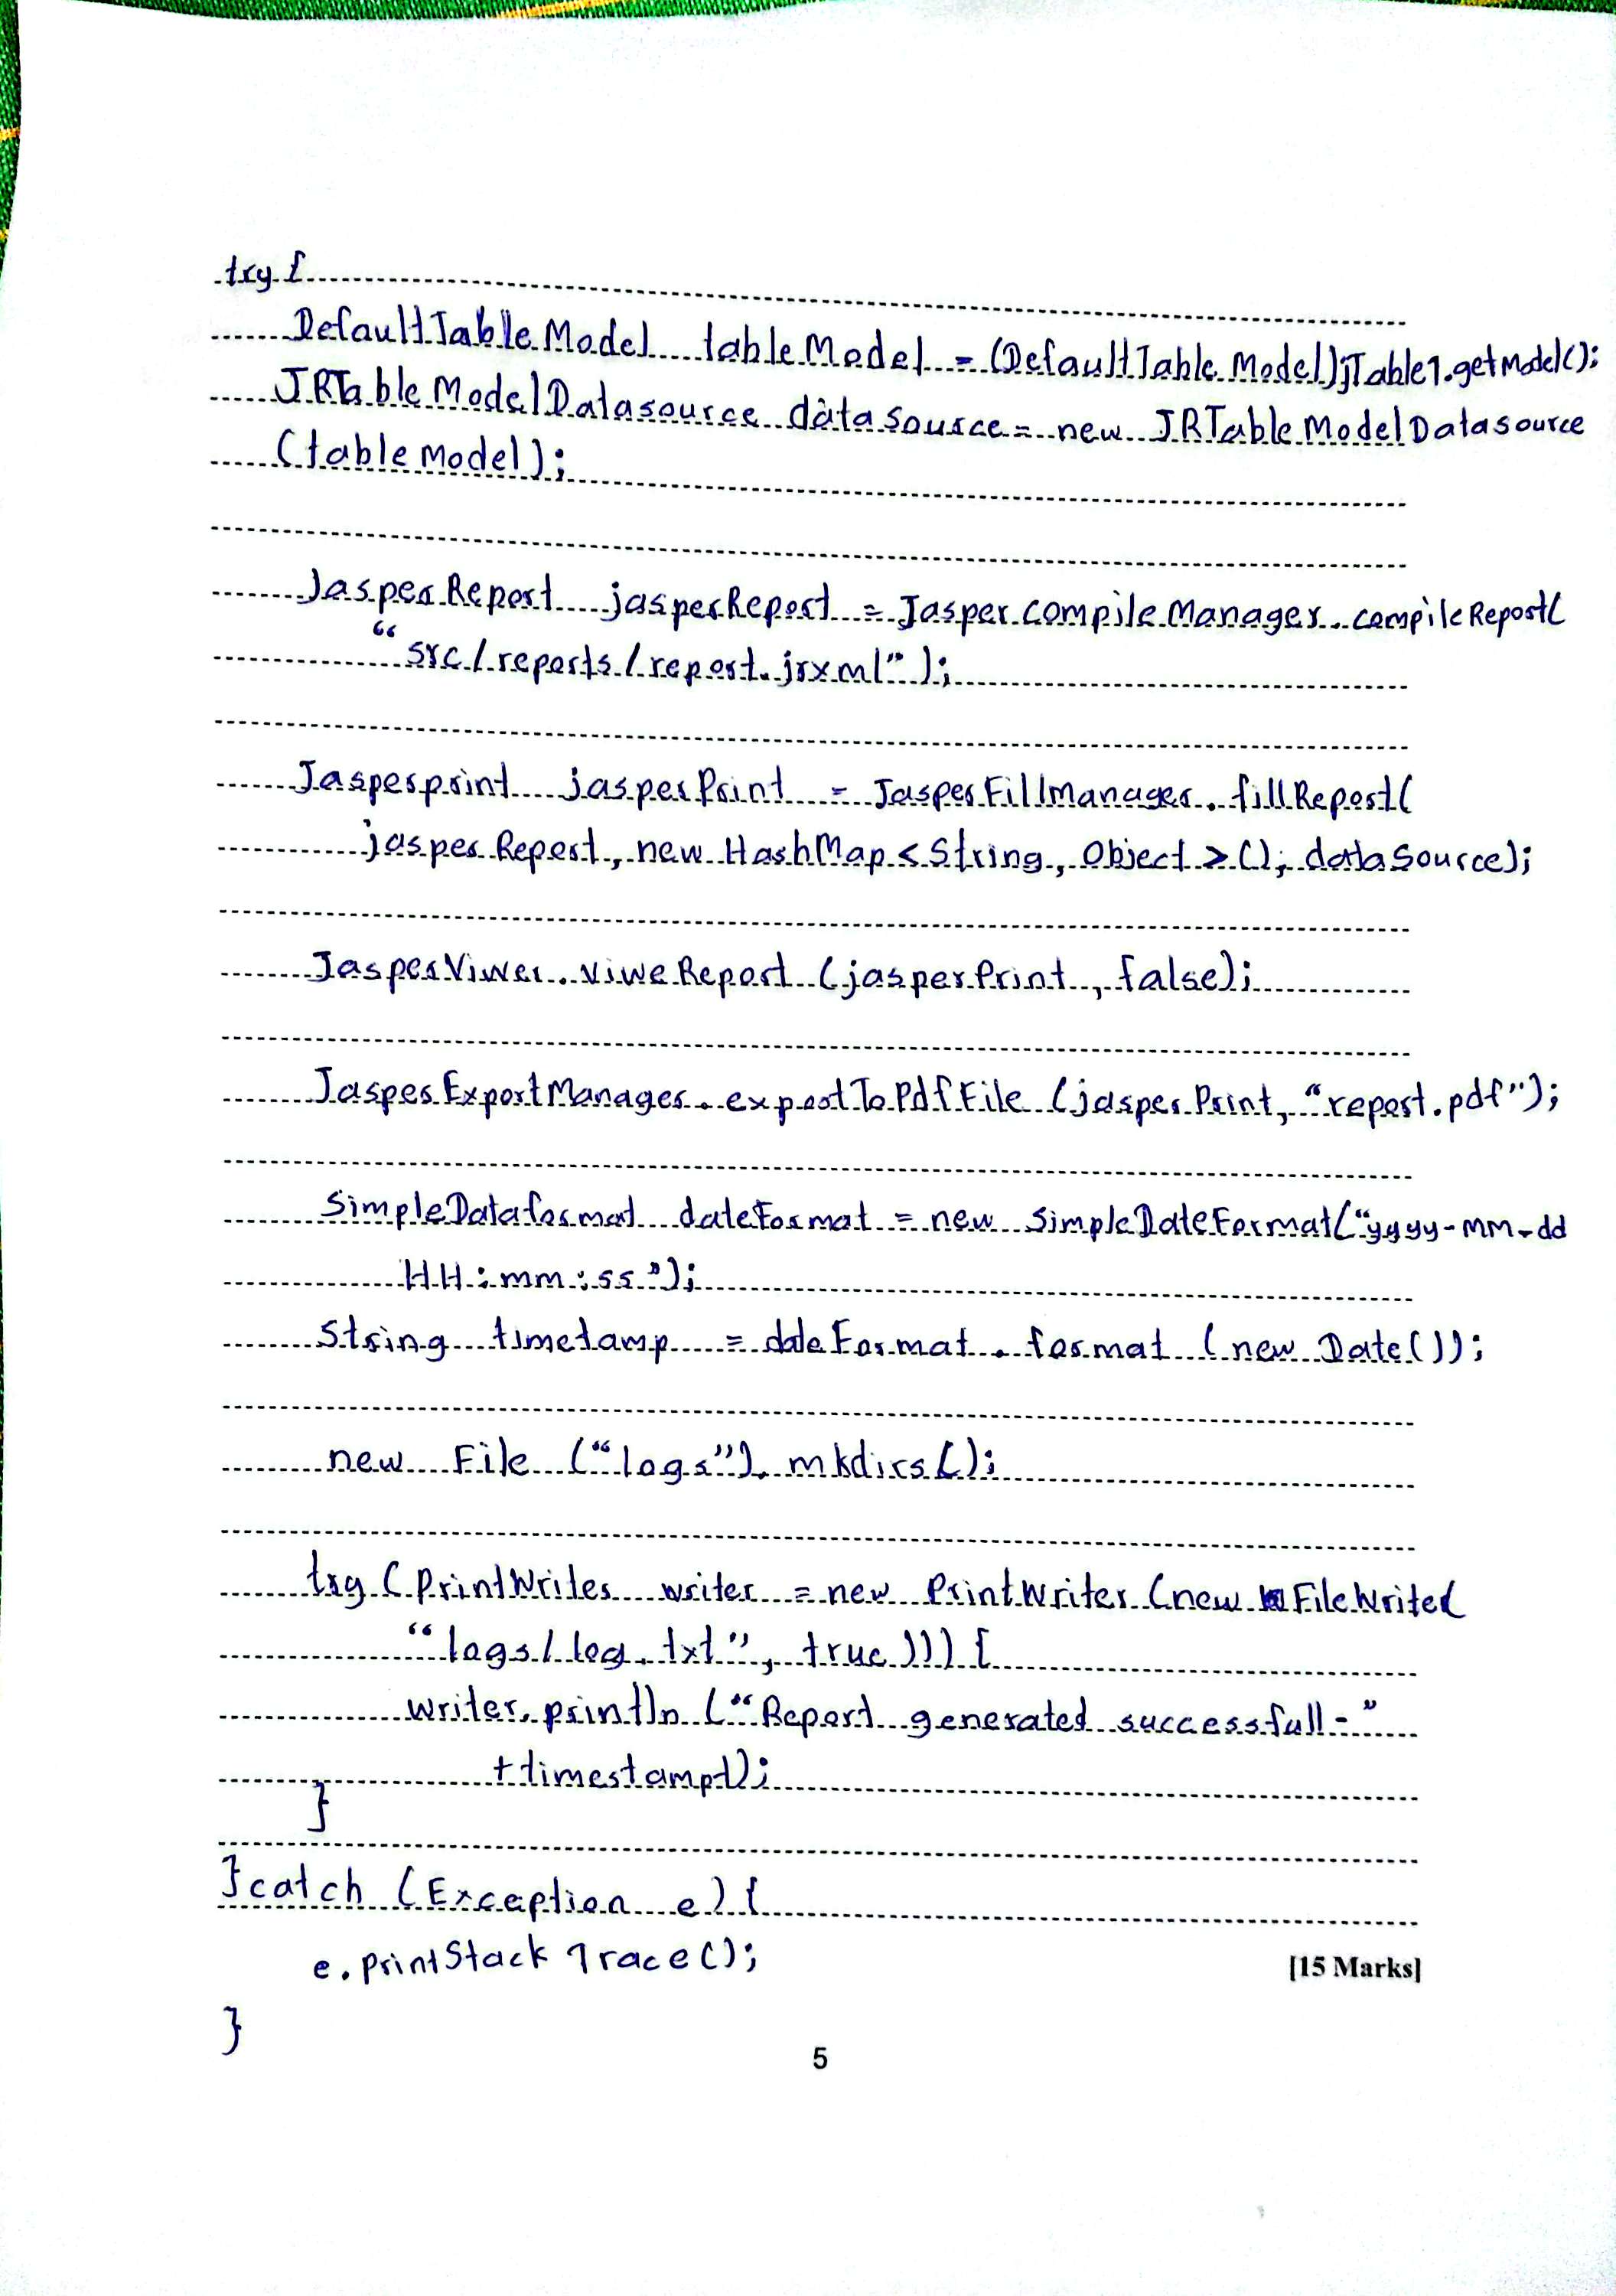 try {
DefaultTableModel tableModel = (DefaultTableModel)jTable1.getModel();
JRTableModelDatasource dataSource = new JRTableModelDatasource
(tableModel);
JasperReport jasperReport = Jasper.compileManager.compileReport(
"src/reports/report.jrxml");
Jasperprint jasperPrint = JasperFillManager.fillReport(
jasperReport, new HashMap<String, Object>(), dataSource);
JasperViwer.viweReport (jasperPrint, false);
JasperExportManager.exportToPdfFile (jasperPrint, "report.pdf");
SimpleDataformat dateFormat = new SimpleDateFormat("yyyy-MM-dd
HH:mm:ss");
String timetamp = dateFormat.format (new Date());
new File ("logs").mkdirs();
try (PrintWriter writer = new PrintWriter (new FileWrite(
"logs/log.txt", true))) {
writer.println ("Report generated successfull - "
+timestampt);
}
}catch (Exception e) {
e.printStackTrace();
[15 Marks]
}
5